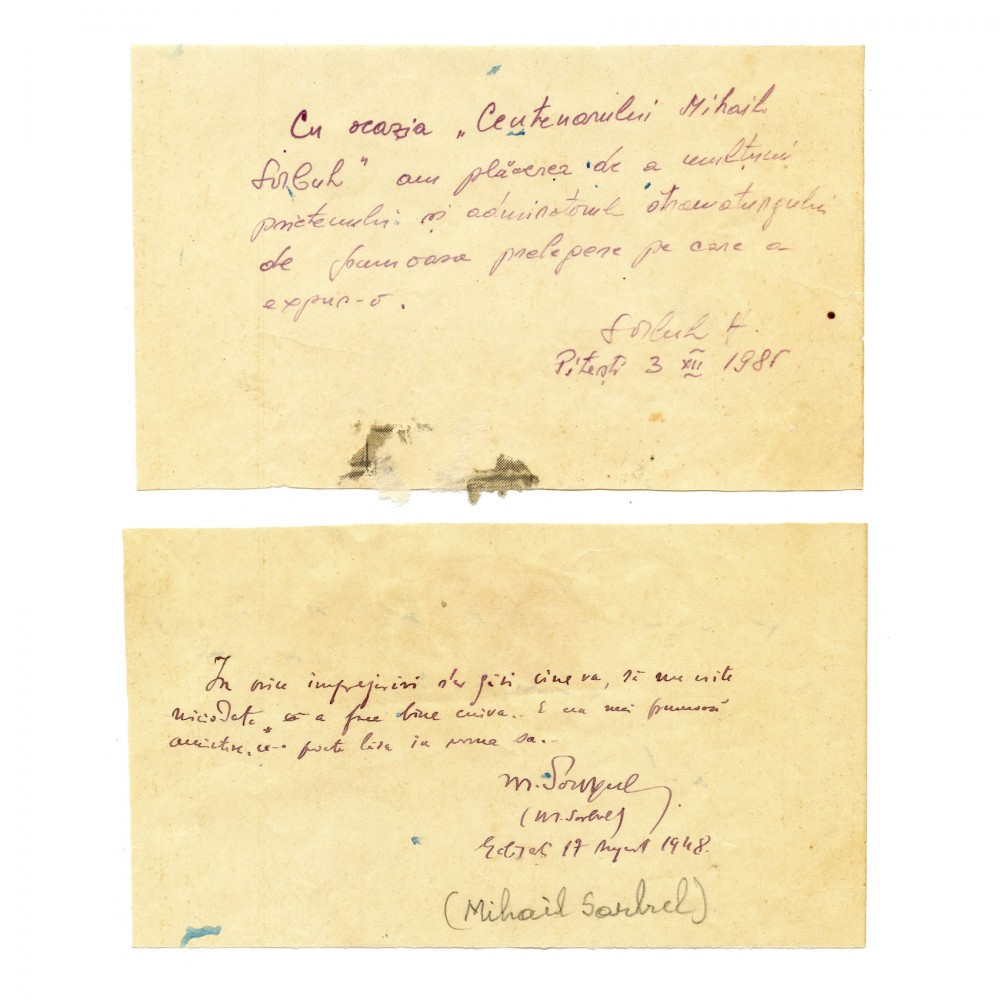 Cu ocazia „Centenarului Mihail
Sorbul" am plăcerea de a mulțumi
prietenului și admiratorul dramaturgului
de frumoasa prelegere pe care a
expus-o.
Sorbul H.
Pitești 3 XII 1985
In orice imprejurări s'ar găsi cineva, să nu uite
niciodată a face bine cuiva.. E cea mai frumoasă
amintire, ce-o poate lăsa in urma sa.-
M. Sorbul
(M. Sorbul)
17 August 1948.
(Mihail Sorbul)